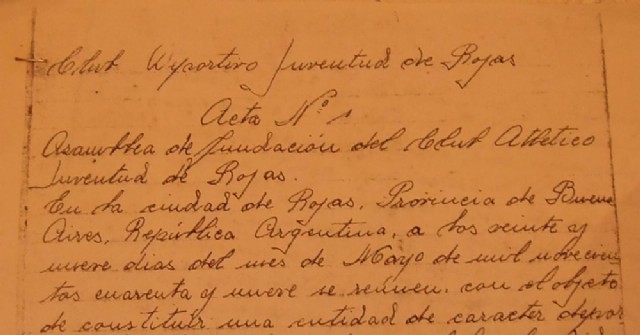 Club Deportivo Juventud de Rojas
Acta Nº 1
Asamblea de fundación del Club Atlético
Juventud de Rojas.
En la ciudad de Rojas, Provincia de Bueno
Aires, República Argentina, a los veinte y
nueve dias del mes de Mayo de mil novecien
tos cuarenta y nueve se reunen, con el objeto
de constituir una entidad de caracter depor